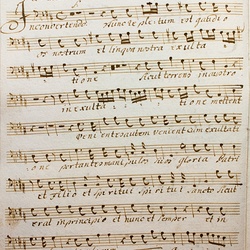 Inconvertendo Tunc repletum est gaudio
os nostrum et lingua nostra exulta
tione Sicut torrens in austro
in exulta tione metent
Venientes autem venient cum exultati
one portantes manipulos suos gloria Patri
et Filio et spiritui spiritui Sancto Sicut
erat in principio et nunc et semper et in